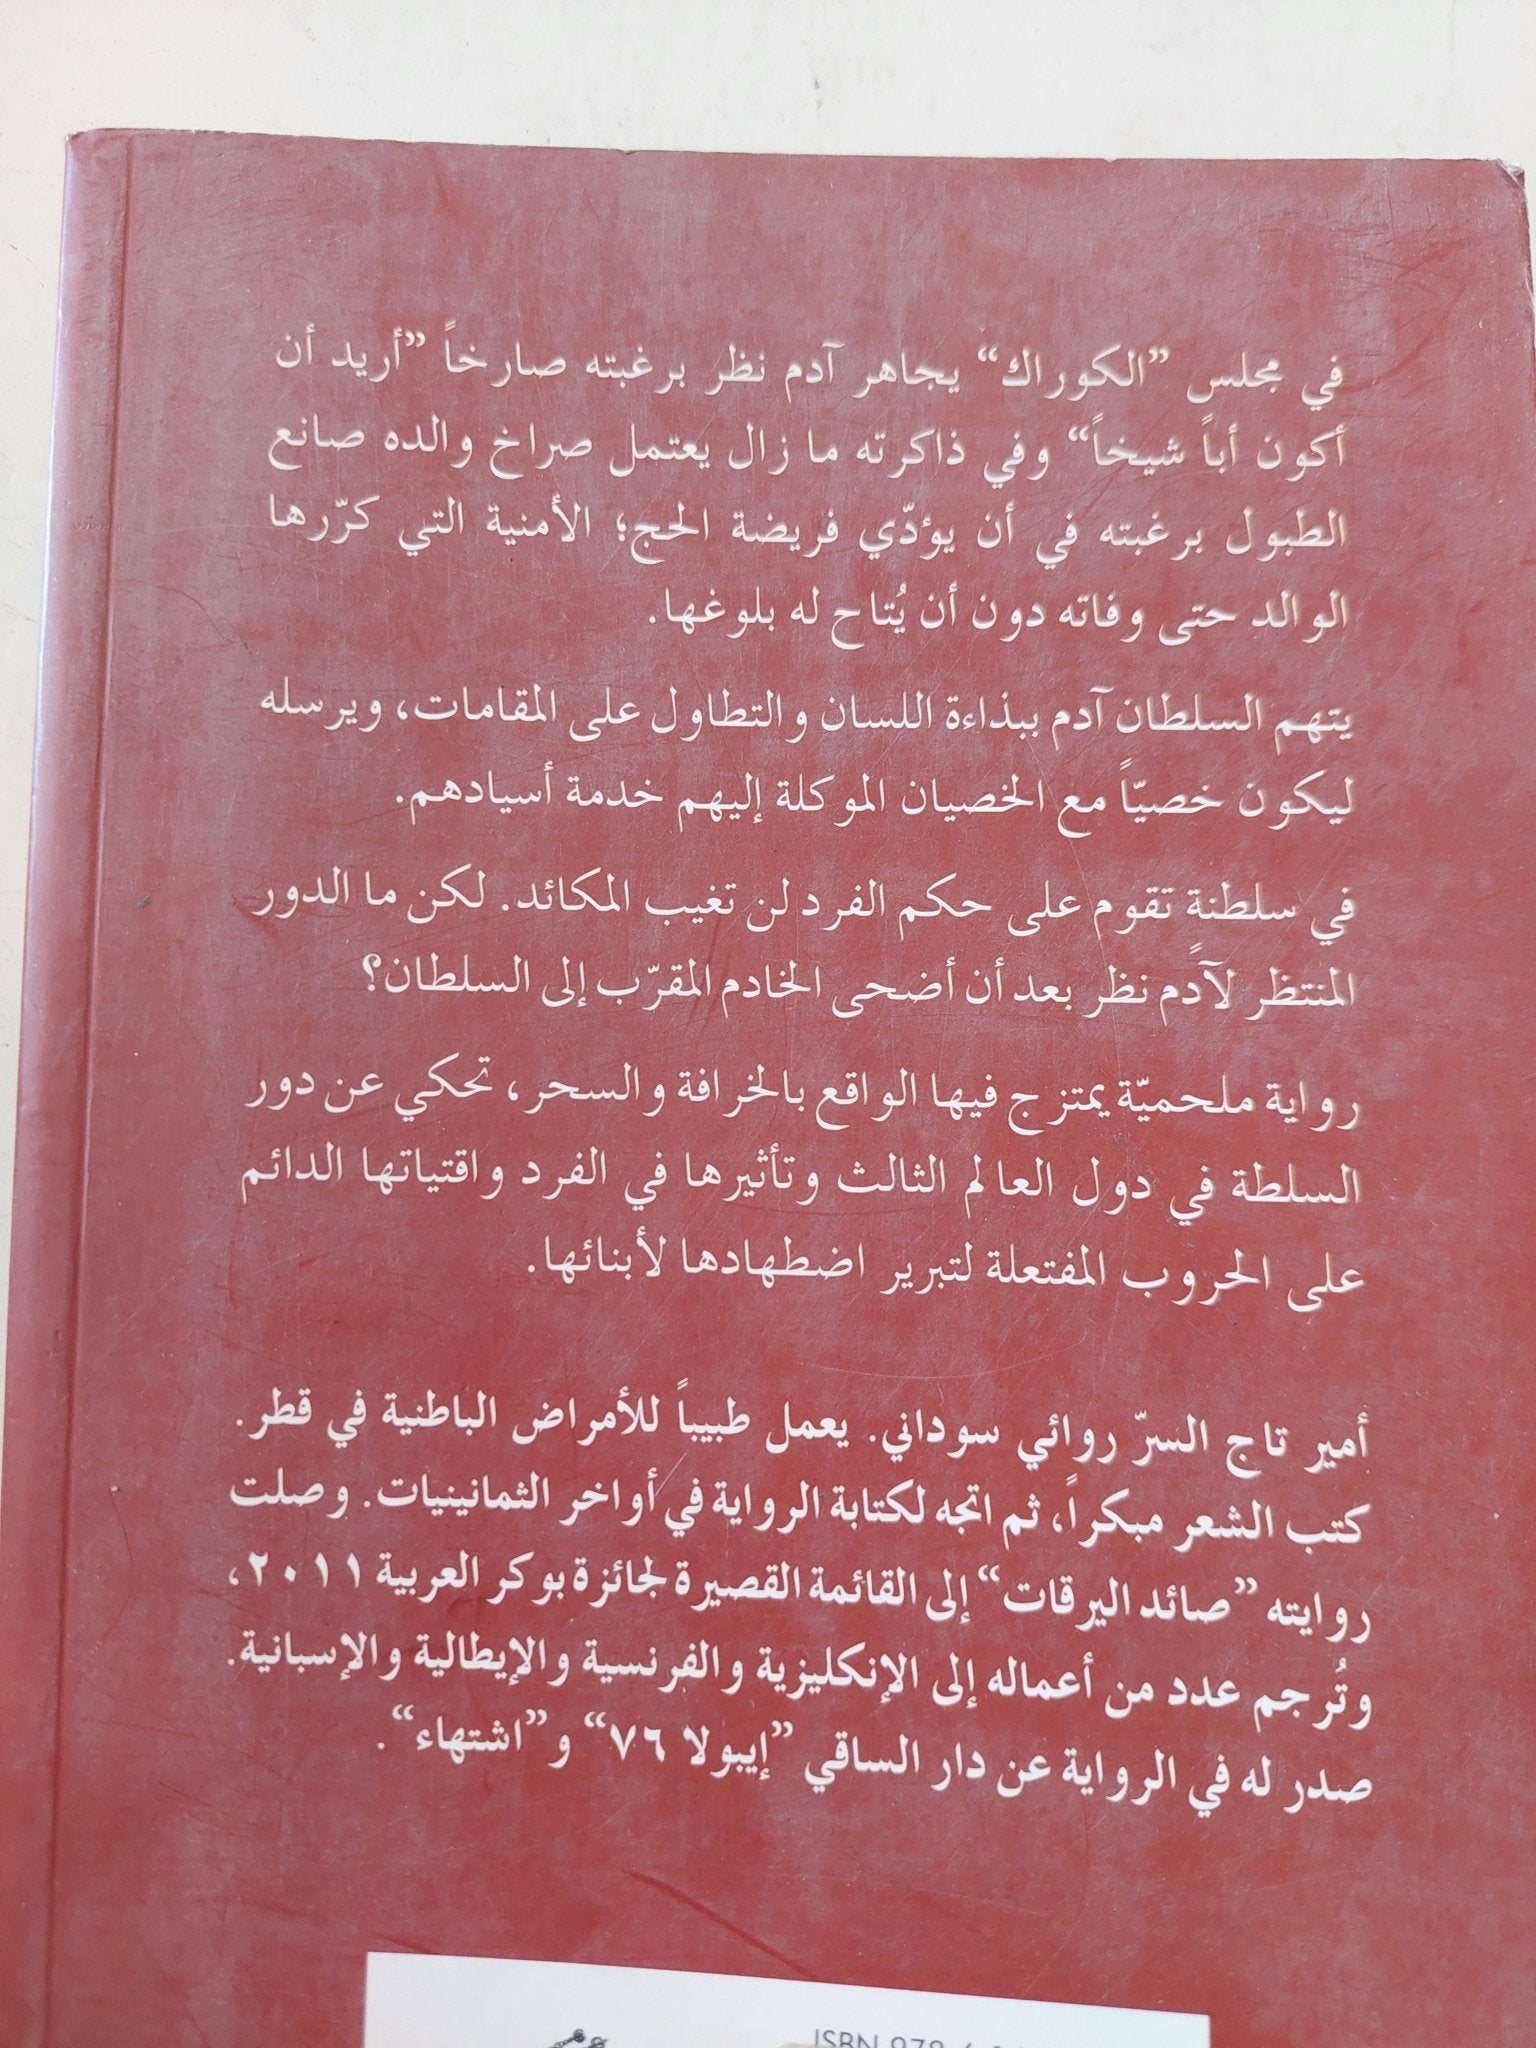 في مجلس ”الكوراك“ يجاهر آدم نظر برغبته صارخاً ”أريد أن
أكون أباً شيخاً“ وفي ذاكرته ما زال يعتمل صراخ والده صانع
الطبول برغبته في أن يؤدّي فريضة الحج؛ الأمنية التي كرّرها
الوالد حتى وفاته دون أن يُتاح له بلوغها.
يتهم السلطان آدم ببذاءة اللسان والتطاول على المقامات، ويرسله
ليكون خصيّاً مع الخصيان الموكلة إليهم خدمة أسيادهم.
في سلطنةٍ تقوم على حكم الفرد لن تغيب المكائد. لكن ما الدور
المنتظر لآدم نظر بعد أن أضحى الخادم المقرّب إلى السلطان؟
رواية ملحميّة يمتزج فيها الواقع بالخرافة والسحر، تحكي عن دور
السلطة في دول العالم الثالث وتأثيرها في الفرد واقتياتها الدائم
على الحروب المفتعلة لتبرير اضطهادها لأبنائها.
أمير تاج السرّ روائي سوداني. يعمل طبيباً للأمراض الباطنية في قطر.
كتب الشعر مبكراً، ثم اتجه لكتابة الرواية في أواخر الثمانينيات. وصلت
روايته ”صائد اليرقات“ إلى القائمة القصيرة لجائزة بوكر العربية ٢٠١١،
وتُرجم عدد من أعماله إلى الإنكليزية والفرنسية والإيطالية والإسبانية.
صدر له في الرواية عن دار الساقي ”إيبولا ٧٦“ و”اشتهاء“.
ISBN 978